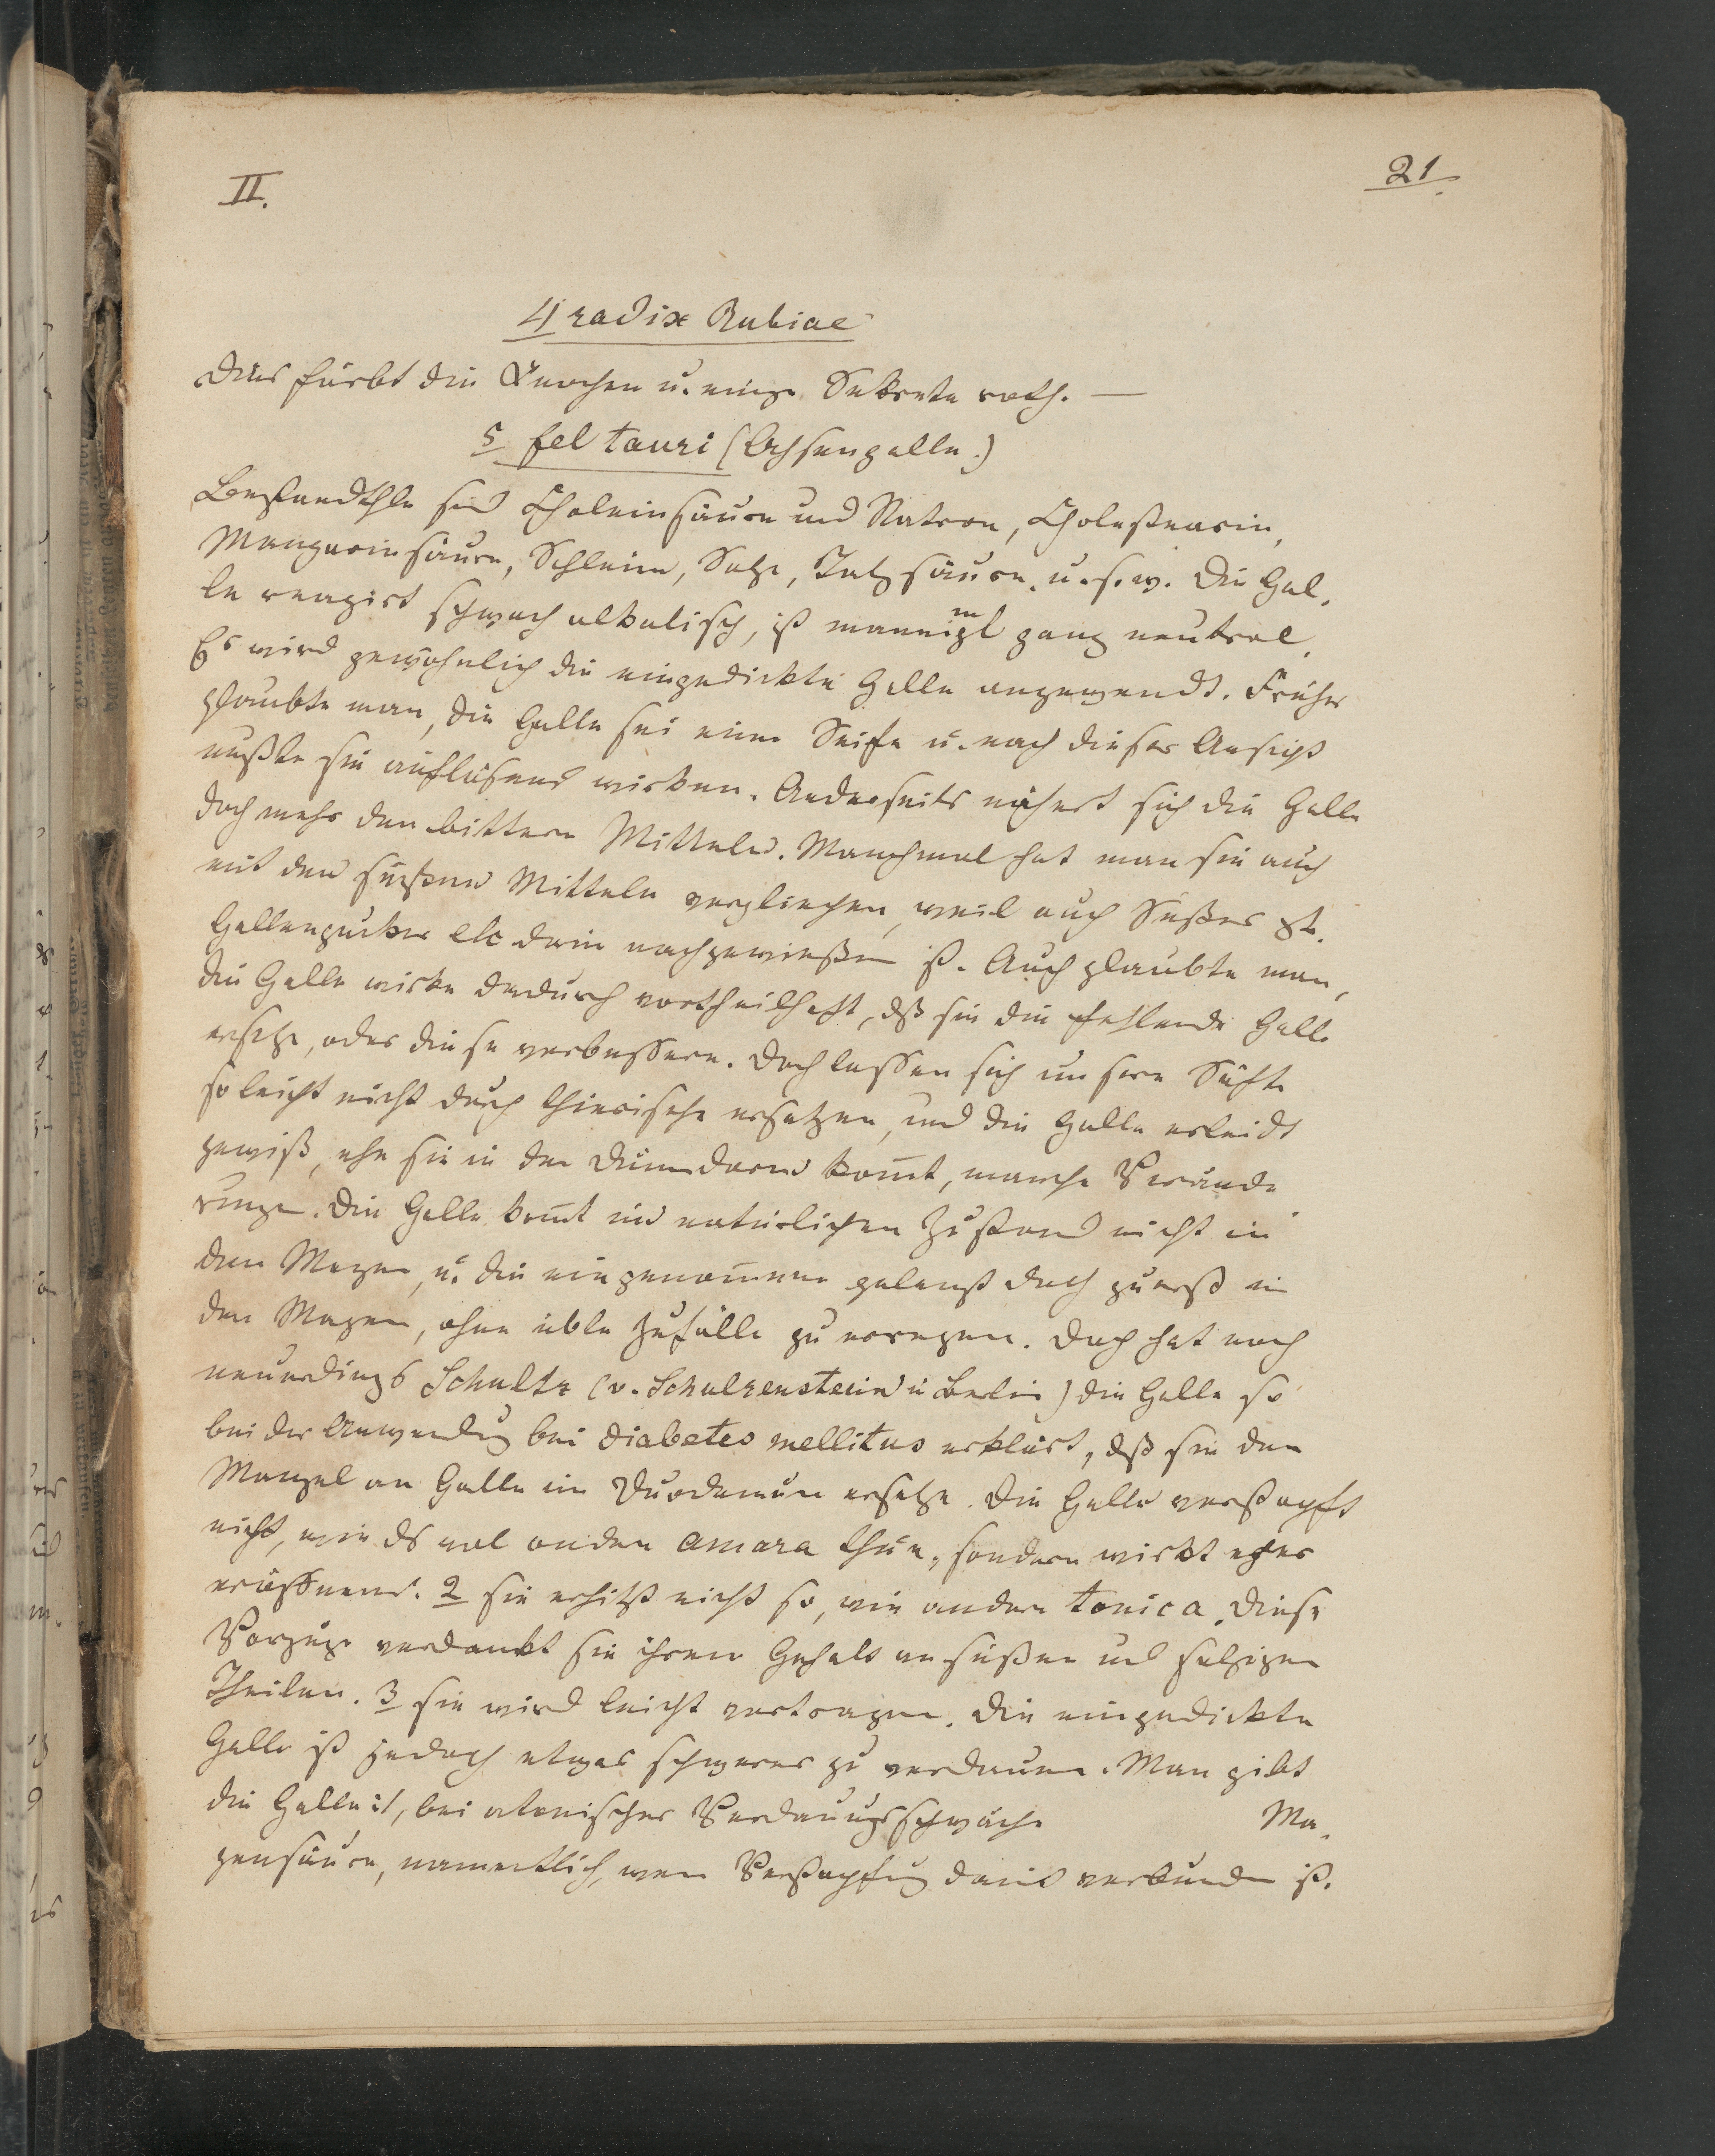 II.
21.
4 radix Rubiae
Dies färbt die Knochen u. einige Sekrete roth. —
5 fel tauri (Ochsengalle.)
Bestandthle sind Choleinsäure und Natron, Cholestearin,
Margarinsäure, Schleim, Salze, Talgsäure. u. s. w. Die Gal-
le reagirt schwach alkalisch, ist mannigml ganz neutral.
Es wird gewöhnlich die eingedickte Galle angewendt. Früher
glaubte man, die Galle sei eine Seife u. nach dieser Ansicht
mußte sie auflösend wirken. Anderseits nähert sich die Galle
doch mehr den bittern Mitteln. Manchmal hat man sie auch
mit den süßen Mitteln verglichen, weil auch Süßes
Gallenzucker etc darin nachgewiesen ist. Auch glaubte man,
die Galle wirke dadurch vortheilhaft, dß sie die fehlende Galle
ersetze, oder diese verbessere. Doch lassen sich unsere Säfte
so leicht nicht durch thierische ersetzen, und die Galle erleidt
gewiß, ehe sie in den Dünndarm komt, manche Verände
rungen. Die Galle komt im natürlichen Zustand nicht in
den Magen, u. die eingenomene gelangt doch zuerst in
den Magen, ohne üble Zufälle zu erregen. Doch hat noch
neuerdings Schultz (v. Schulzenstein in Berlin) die Galle so
bei der Anwendung bei diabetes mellitus erklärt, dß sie den
Mangel an Galle im Duodenum ersetze. Die Galle verstopft
nicht, wie ds wol andere amara thun, sondern wirkt eher
eröffnend. 2 sie erhitzt nicht so, wie andere tonica. Diese
Vorzüge verdankt sie ihrem Gehalt an süßen und salzigen
Theilen. 3 sie wird leicht vertragen. Die eingedickte
Galle ist jedoch etwas schwerer zu verdauen. Man gibt
die Galle: 1, bei atonischer Verdauungsschwäche Ma-
gensäure, namentlich, wen Verstopfung damit verbunden ist.